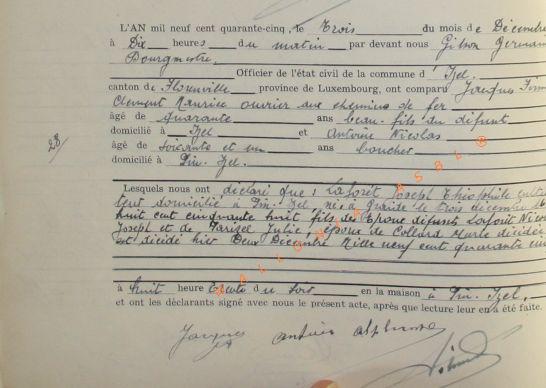 L'AN mil neuf cent quarante-cinq, le Trois du mois de Décembre
à Dix heures du matin par devant nous Gilson Germain
Bourgmestre, Officier de l'état civil de la commune d' Izel,
canton de Florenville province de Luxembourg, ont comparu Jacques Firmin
Clément Maurice ouvrier aux chemins de fer
âgé de quarante ans beau-fils du défunt
domicilié à Izel et Antoine Nicolas
28/
âgé de soixante et un ans boucher
domicilié à Pin-Izel.
Lesquels nous ont déclaré que : Laforêt Joseph Théophile
domicilié à Pin-Izel, né à le trois décembre 18
huit cent cinquante huit fils des Epoux défunts Laforêt
Joseph et de Julie, époux de Collard Marie décédée
est décédé hier Deux Décembre Mille neuf cent quarante cinq
à huit heure trente du soir en la maison à Pin-Izel.
et ont les déclarants signé avec nous le présent acte, après que lecture leur en a été faite.
WALLONIA ASBL ®
Jacques